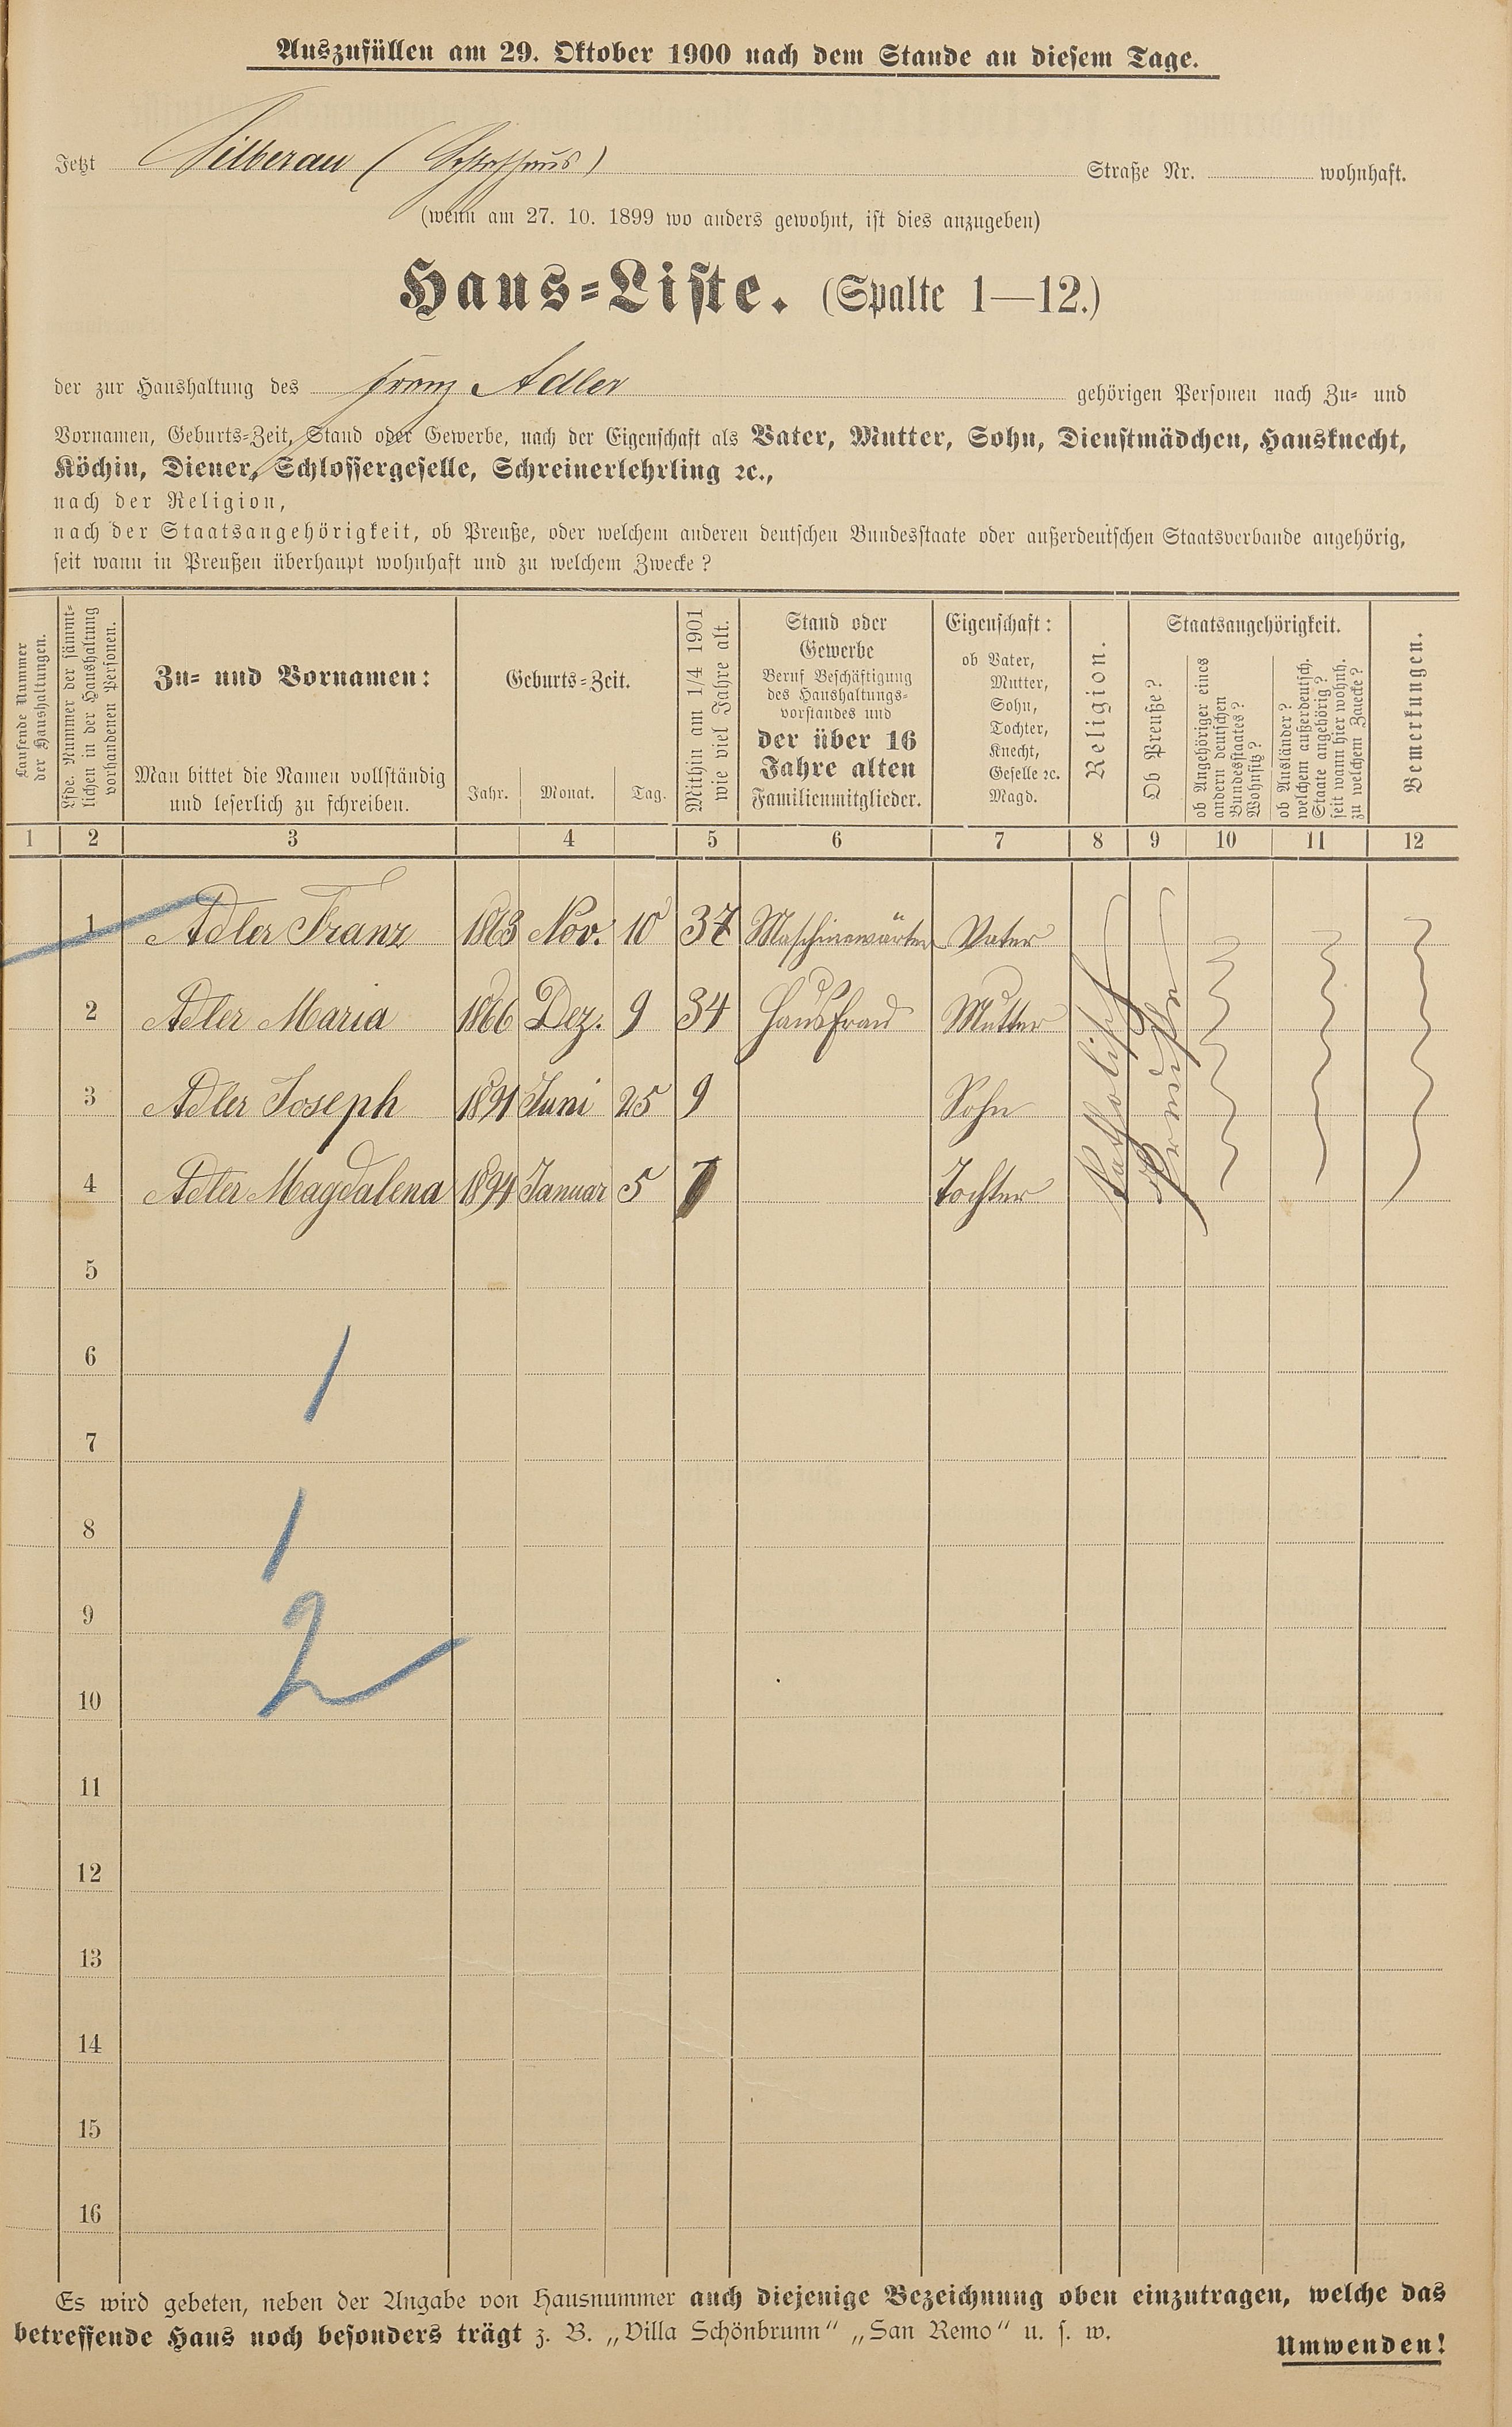 Auszufüllen am 29. Oktober 1900 nach dem Stande an diesem Tage.
Jetzt Silberau ( ) Straße Nr. wohnhaft.
(wenn am 27. 10. 1899 wo anders gewohnt, ist dies anzugeben)
Haus=Liste. (Spalte 1—12.)
der zur Haushaltung des Franz Adler gehörigen Personen nach Zu= und
Vornamen, Geburts=Zeit, Stand oder Gewerbe, nach der Eigenschaft als Vater, Mutter, Sohn, Dienstmädchen, Hausknecht,
Köchin, Diener, Schlossergeselle, Schreinerlehrling ꝛc.,
nach der Religion,
nach der Staatsangehörigkeit, ob Preuße, oder welchem anderen deutschen Bundesstaate oder außerdeutschen Staatsverbande angehörig,
seit wann in Preußen überhaupt wohnhaft und zu welchem Zwecke?
Laufende Nummer
der Haushaltungen.
Lfde. Nummer der sämmt=
lichen in der Haushaltung
vorhandenen Personen.
Zu= und Vornamen:
Man bittet die Namen vollständig
und leserlich zu schreiben.
Geburts=Zeit.
Jahr. Monat. Tag.
Mithin am 1/4 1901
wie viel Jahre alt.
Stand oder
Gewerbe
Beruf Beschäftigung
des Haushaltungs=
vorstandes und
der über 16
Jahre alten
Familienmitglieder.
Eigenschaft:
ob Vater,
Mutter,
Sohn,
Tochter,
Knecht,
Geselle ꝛc.
Magd.
Religion.
Staatsangehörigkeit.
Ob Preuße?
ob Angehöriger eines
andern deutschen
Bundesstaates?
Wohnsitz?
ob Ausländer?
welchem außerdeutsch.
Staate angehörig?
seit wann hier wohnh.
zu welchem Zwecke?
Bemerkungen.
1 2 3 4 5 6 7 8 9 10 11 12
1 Adler Franz 1863 Nov. 10 37 Maschinenwärter Vater
2 Adler Maria 1866 Dez. 9 34 Hausfrau Mutter
3 Adler Joseph 1891 Juni 25 9 Sohn
4 Adler Magdalena 1894 Januar 5 7 Tochter
Katholisch
Preuße
5
6
1
7
8
1
9
2
10
11
12
13
14
15
16
Es wird gebeten, neben der Angabe von Hausnummer auch diejenige Bezeichnung oben einzutragen, welche das
betreffende Haus noch besonders trägt z. B. „Villa Schönbrunn“ „San Remo“ u. s. w.
Umwenden!